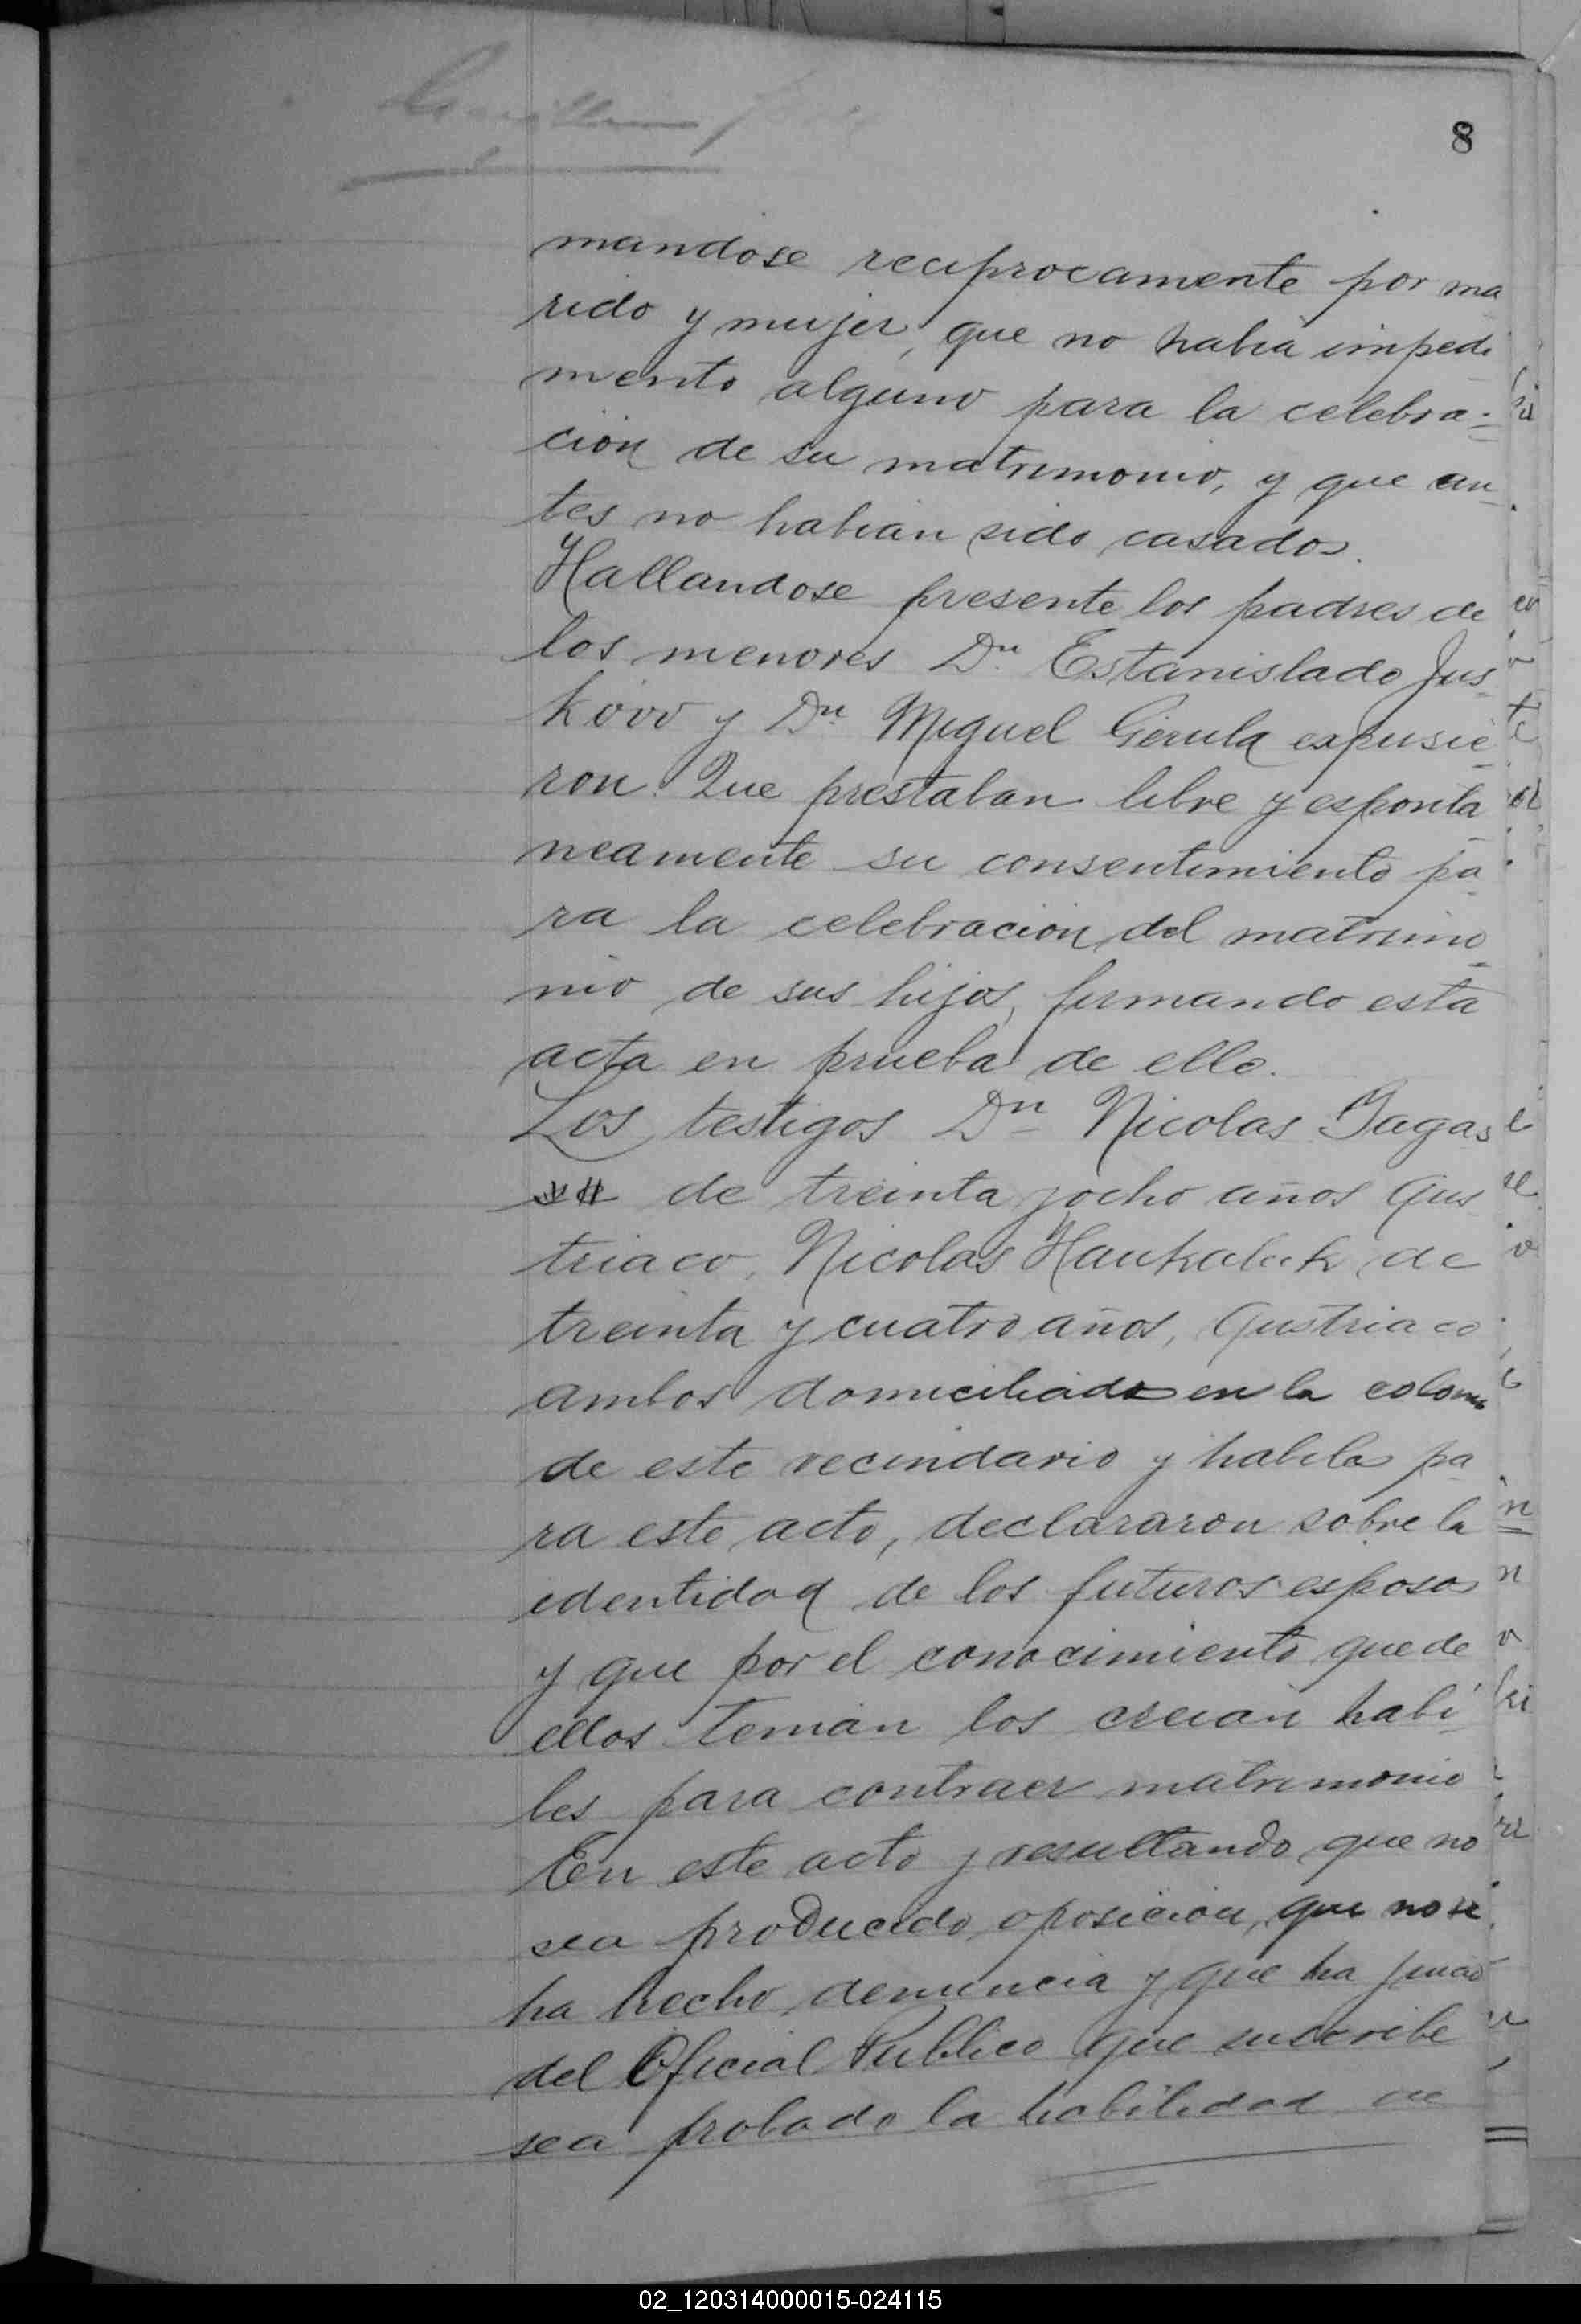 8
mandose reciprocamente por ma
rido y mujer, que no habia impedi
mento alguno para la celebra-
cion de su matrimonio, y que an
tes no habian sido casados.
Hallandose presente los padres de
los menores Dn Estanislado Jus
kovo y Dn Miguel Gerula expusie
ron: Que prestaban libre y esponta
neamente su consentimiento pa
ra la celebracion del matrimo
nio de sus hijos, firmando esta
acta en prueba de ello.
Los testigos Dn Nicolas
de treinta y ocho años aus
triaco, Nicolas de
treinta y cuatro años, austriaco
ambos domiciliado en la colonia
de este vecindario y habiles pa
ra este acto, declararon sobre la
identidad de los futuros esposos
y que por el conocimiento que de
ellos tenian los creian habi
les para contraer matrimonio
En este acto y resultando que no
sea producido oposicion, que no se
ha hecho denuncia y que ha juicio
del Oficial Publico que suscribe
sea probado la habilidad de
02_120314000015-024115